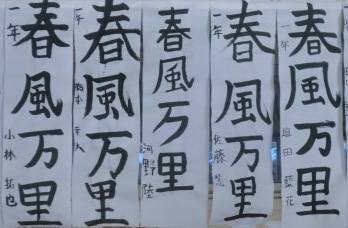 春風万里
一年
恩田 藍花
春風万里
一年
佐藤 悠
春風万里
河野 陸
春風万里
一年
春風万里
一年
小林 拓也